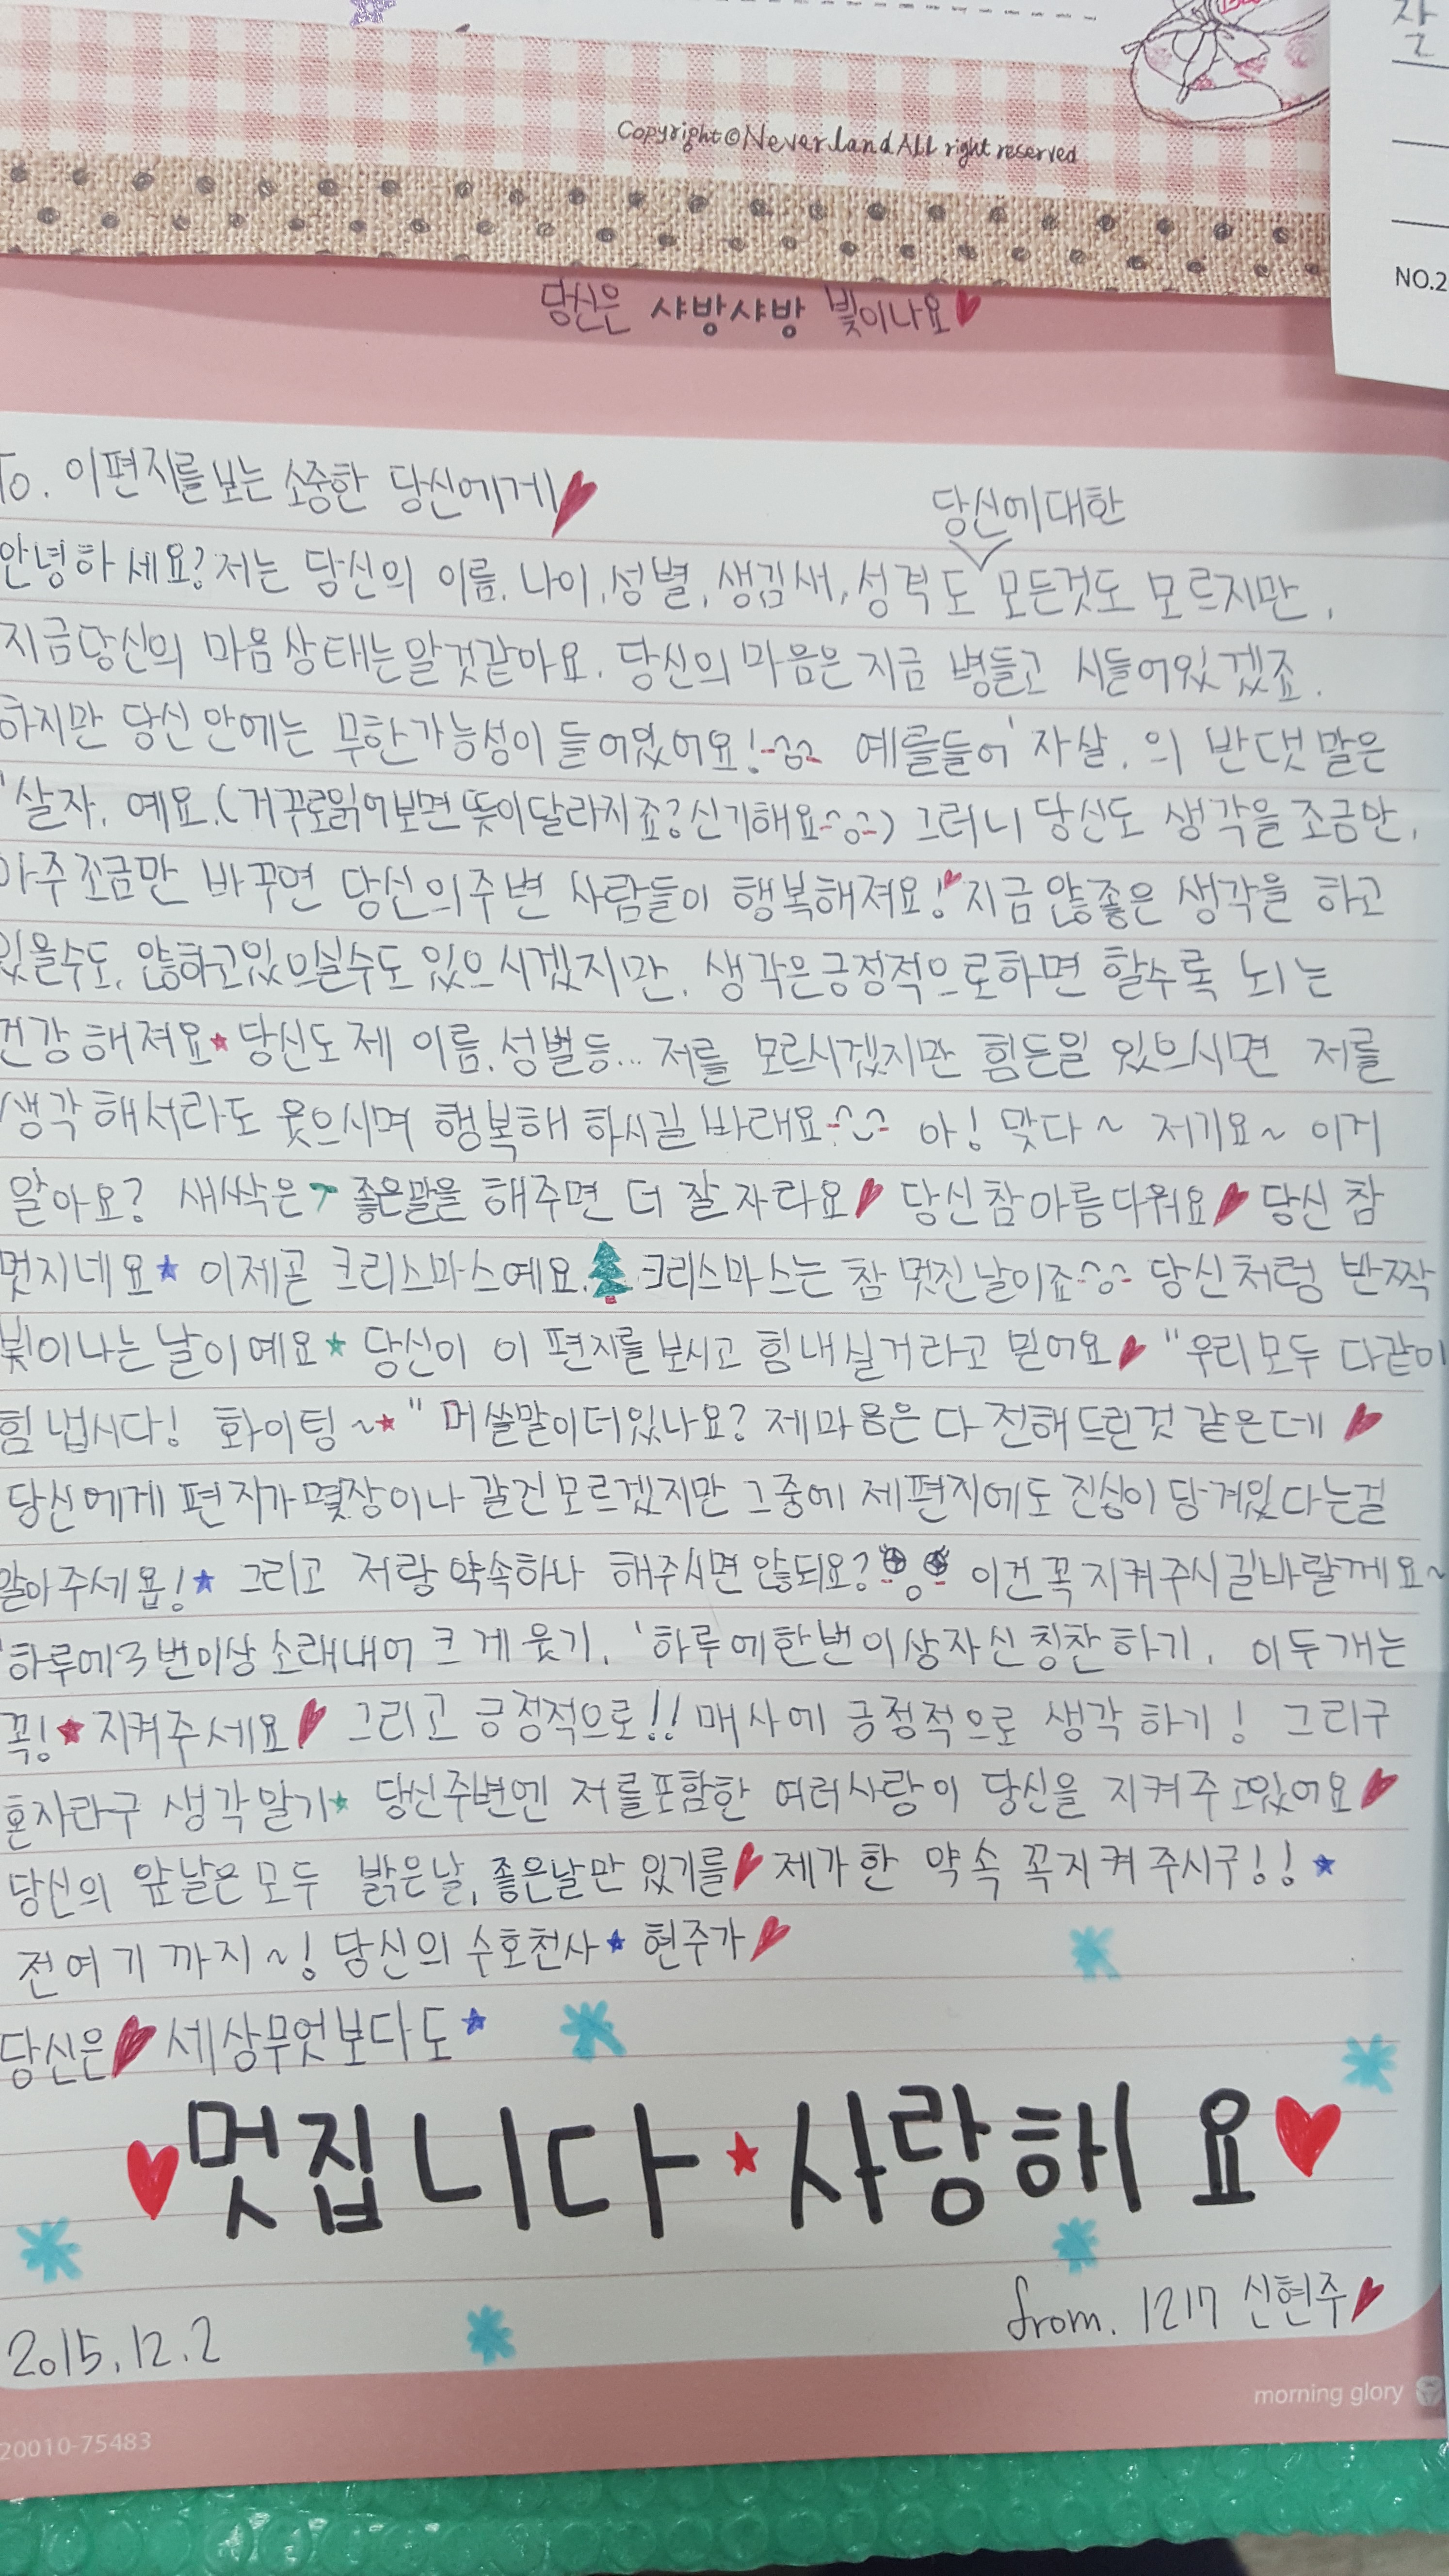 Copyright©Neverland All right reserved
잘
NO.2
당신은 샤방샤방 빛이나요♥
To. 이편지를보는 소중한 당신에게♥
당신에대한
안녕하세요? 저는 당신의 이름, 나이, 성별, 생김새, 성격도 모든것도 모르지만,
지금당신의 마음상태는알것같아요. 당신의마음은지금 병들고 시들어있겠죠.
하지만 당신안에는 무한가능성이 들어있어요! 예를들어 '자살, 의 반댓말은
'살자, 예요.(거꾸로읽어보면뜻이달라지죠?신기해요) 그러니 당신도 생각을조금만,
아주조금만 바꾸면 당신의주변 사람들이 행복해져요!♥지금않좋은 생각을 하고
있을수도, 않하고있으실수도 있으시겠지만, 생각은긍정적으로하면 할수록 뇌는
건강해져요★당신도제 이름, 성별등... 저를 모르시겠지만 힘든일 있으시면 저를
생각해서라도 웃으시며 행복해 하시길바래요 아! 맞다~ 저기요~ 이거
알아요? 새싹은 좋은말을 해주면 더 잘자라요♥ 당신참아름다워요♥ 당신참
멋지네요★ 이제곧 크리스마스예요. 크리스마스는 참 멋진날이죠 당신처럼 반짝
빛이나는날이예요★ 당신이 이 편지를보시고 힘내실거라고 믿어요♥ "우리모두 다같이
힘냅시다! 화이팅~★" 머쓸말이더있나요? 제마음은다전해드린것 같은데♥
당신에게 편지가몇장이나 갈진모르겠지만 그중에 제편지에도 진심이담겨있다는걸
알아주세욥!★ 그리고 저랑약속하나 해주시면않되요? 이건꼭지켜주시길바랄께요~
'하루에3번이상소래내어 크게웃기, '하루에한번이상자신칭찬하기, 이두개는
꼭!★지켜주세요♥ 그리고 긍정적으로!! 매사에 긍정적으로 생각하기! 그리구
혼자라구 생각말기★ 당신주변엔 저를포함한 여러사랑이 당신을 지켜주고있어요♥
당신의 앞날은모두 밝은날, 좋은날만 있기를♥ 제가한 약속 꼭지켜주시구!!★
전여기까지~! 당신의수호천사★현주가♥
당신은♥세상무엇보다도★
♥멋집니다★사랑해요♥
from. 1217 신현주♥
2015.12.2
morning glory
20010-75483